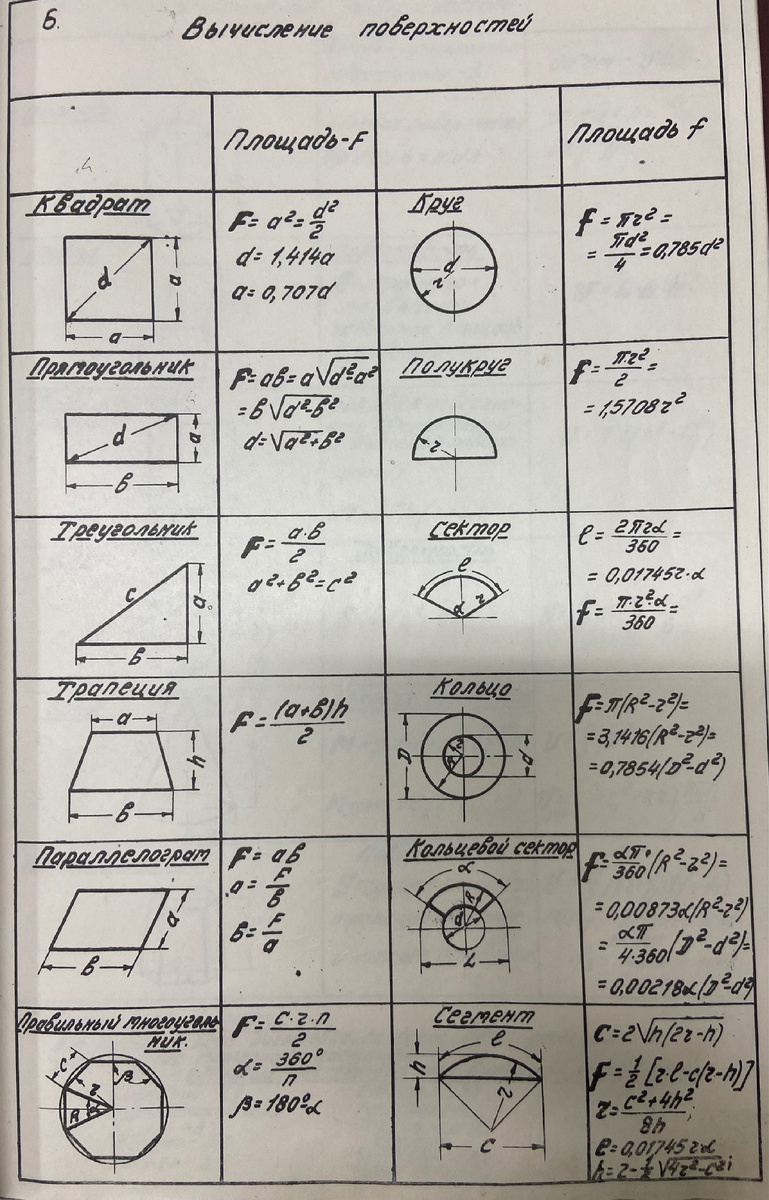 6.
Вычисление поверхностей
Площадь-F
Площадь f
Квадрат
d
a
a
F = a² = d²/2
d = 1,414a
a = 0,707d
Круг
d
r
f = πr² =
= πd²/4 = 0,785d²
Прямоугольник
d
a
в
F = aв = a√d²-a²
= в√d²-в²
d = √a²+в²
Полукруг
r
f = πr²/2 =
= 1,5708r²
Треугольник
c
a
в
F = a·в/2
a²+в² = c²
Сектор
ℓ
α
r
ℓ = 2πrα/360 =
= 0,01745r·α
f = π·r²·α/360 =
Трапеция
a
h
в
F = (a+в)h/2
Кольцо
D
d
R
f = π(R²-r²) =
= 3,1416(R²-r²) =
= 0,7854(D²-d²)
Параллелограм
a
в
F = aв
a = F/в
в = F/a
Кольцевой сектор
α
R
d
L
f = απ/360(R²-r²) =
= 0,00873α(R²-r²)
= απ/4·360(D²-d²) =
= 0,00218α(D²-d²
Правильный многоуголь
ник.
c
r
β
R
α
F = c·r·n/2
α = 360°/n
β = 180°-α
Сегмент
ℓ
h
r
c
c = 2√h(2r-h)
f = 1/2[r·ℓ-c(r-h)]
r = c²+4h²/8h;
ℓ = 0,01745rα
h = r-1/2√4r²-c²;